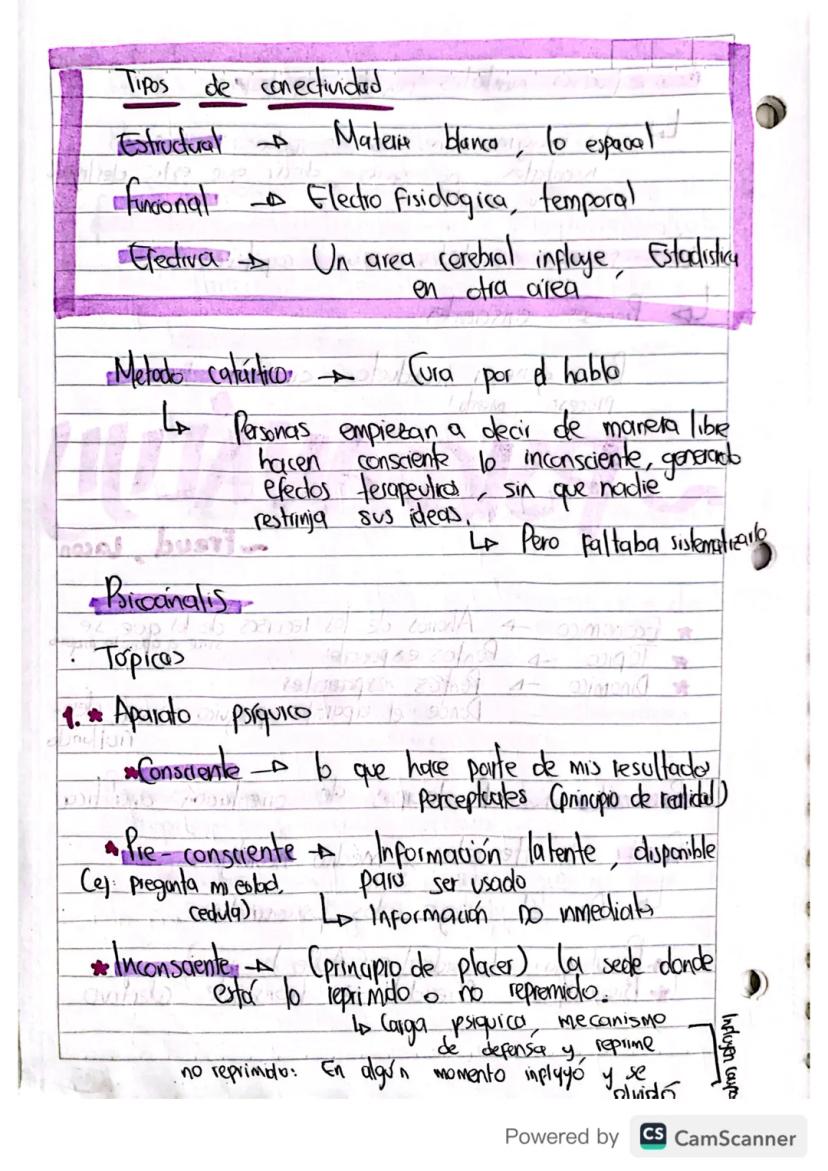 Tipos de conectividad
Estructural → Materia blanca, lo espacial
Funcional → Electro fisiologica, temporal
Efectiva → Un area cerebral influye, Estadistica
en otra area
Metodo catártico → Cura por el habla
↳ Personas empiezan a decir de manera libre
hacen consciente lo inconsciente, generando
efectos terapeuticos, sin que nadie
restrinja sus ideas.
↳ Pero faltaba sistematizarlo
Psicoánalis
· Tópicas
1. * Aparato psíquico
*Consciente → lo que hace parte de mis resultados
perceptuales (principio de realidad)
*Pre-consciente → Información latente, disponible
(ej: pregunta mi edad, para ser usado
cedula) ↳ Información no inmediata
*Inconsciente → (principio de placer) la sede donde
está lo reprimido o no repremido.
↳ Carga psiquica, mecanismo
de defensa y reprime
no reprimido: En algún momento influyó y se
olvidó
Influyen
Powered by CS CamScanner